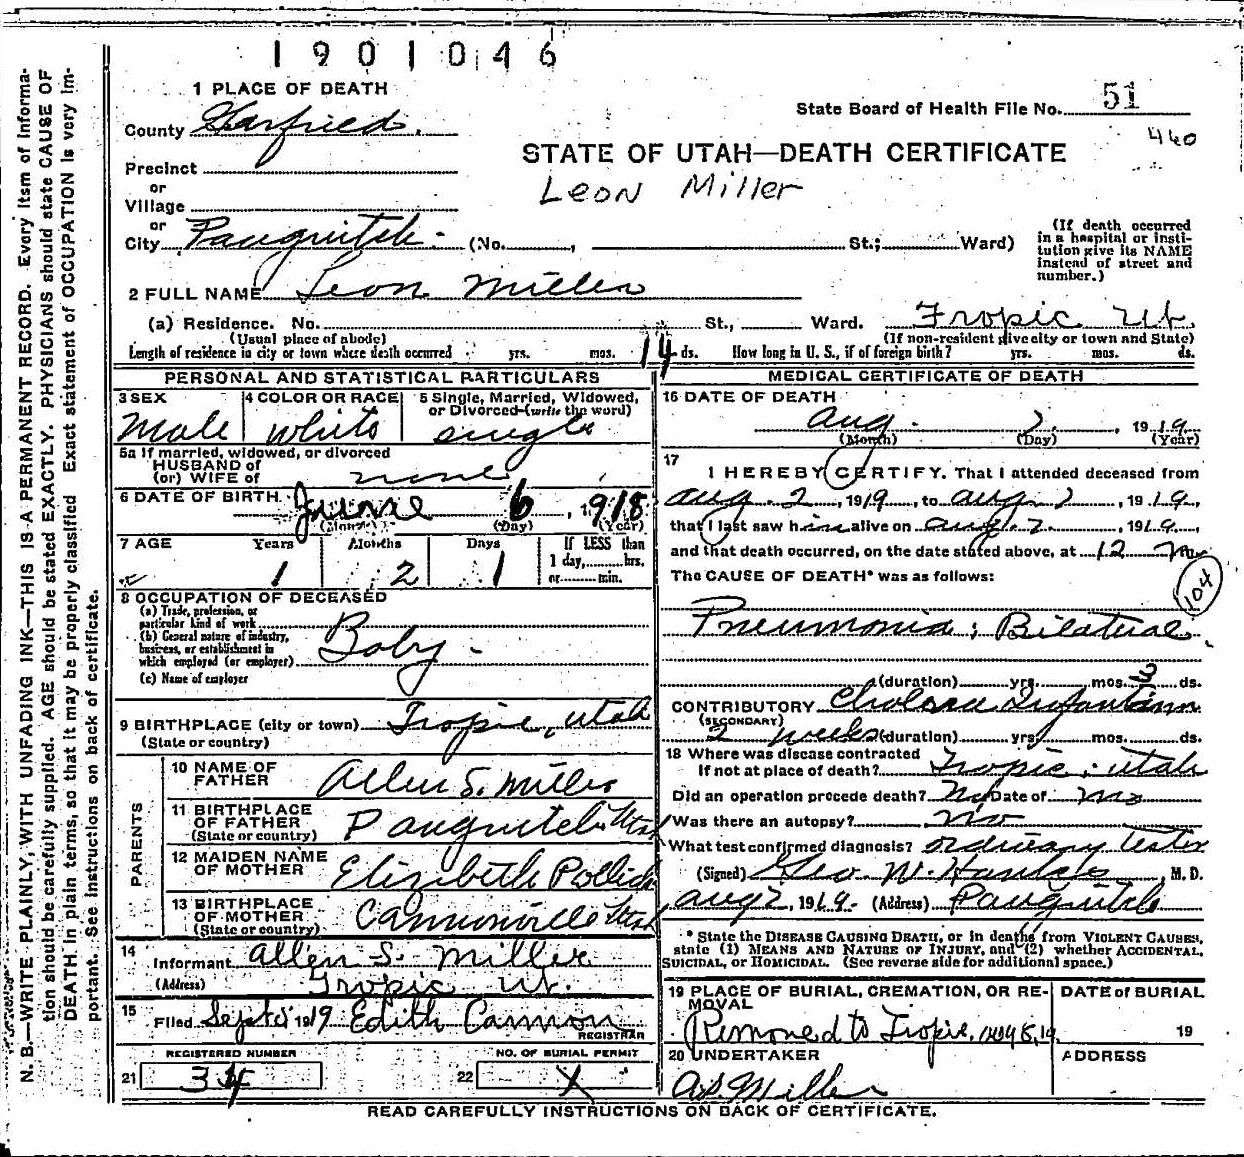 1901046
1 PLACE OF DEATH
State Board of Health File No. 51
County Garfield.
460
Precinct
STATE OF UTAH—DEATH CERTIFICATE
or
Leon Miller
Village
or
City Panguitch. (No. , St.; Ward)
(If death occurred in a hospital or insti-
tution give its NAME
instead of street and
number.)
2 FULL NAME Leon Miller
(a) Residence. No. St., Ward. Tropic Ut.
(Usual place of abode) (If non-resident give city or town and State)
Length of residence in city or town where death occurred yrs. mos. 14 ds. How long in U. S., if of foreign birth? yrs. mos. ds.
PERSONAL AND STATISTICAL PARTICULARS
3 SEX 4 COLOR OR RACE 5 Single, Married, Widowed,
or Divorced (write the word)
Male White single
5a If married, widowed, or divorced
HUSBAND of
(or) WIFE of none
6 DATE OF BIRTH June 6, 1918
(Month) (Day) (Year)
7 AGE Years Months Days If LESS than
1 day, hrs.
or min.
1 2 1
8 OCCUPATION OF DECEASED
(a) Trade, profession, or
particular kind of work
(b) General nature of industry,
business, or establishment in
which employed (or employer) Baby -
(c) Name of employer
9 BIRTHPLACE (city or town) Tropic, Utah
(State or country)
PARENTS
10 NAME OF
FATHER Allen S. Miller
11 BIRTHPLACE
OF FATHER Panguitch Utah
(State or country)
12 MAIDEN NAME
OF MOTHER Elizibeth Pollick
13 BIRTHPLACE
OF MOTHER Cannonville Utah
(State or country)
14
Informant Allen S. Miller
(Address) Tropic Ut.
15
Filed Sept 5 1919 Edith Cannon
REGISTRAR
REGISTERED NUMBER NO. OF BURIAL PERMIT
21 34 22 X
MEDICAL CERTIFICATE OF DEATH
16 DATE OF DEATH
Aug. 2, 1919
(Month) (Day) (Year)
17
I HEREBY CERTIFY. That I attended deceased from
Aug. 2, 1919, to Aug 2, 1919,
that I last saw him alive on Aug. 2, 1919,
and that death occurred, on the date stated above, at 12
The CAUSE OF DEATH* was as follows:
104
Pneumonia; Bilateral
(duration) yrs. mos. 3 ds.
CONTRIBUTORY Cholera Infantum
(SECONDARY)
2 weeks (duration) yrs. mos. ds.
18 Where was disease contracted
If not at place of death? Tropic, Utah
Did an operation precede death? No Date of no
Was there an autopsy? no
What test confirmed diagnosis? ordinary tests
(Signed) Geo. W. , M. D.
Aug 2, 1919. (Address) Panguitch
* State the DISEASE CAUSING DEATH, or in deaths from VIOLENT CAUSES,
state (1) MEANS AND NATURE OF INJURY, and (2) whether ACCIDENTAL,
SUICIDAL, or HOMICIDAL. (See reverse side for additional space.)
19 PLACE OF BURIAL, CREMATION, OR RE-
MOVAL
DATE of BURIAL
Removed to Tropic, 19
20 UNDERTAKER ADDRESS
A.S. Miller
READ CAREFULLY INSTRUCTIONS ON BACK OF CERTIFICATE.
N. B.—WRITE PLAINLY, WITH UNFADING INK—THIS IS A PERMANENT RECORD. Every item of informa-
tion should be carefully supplied. AGE should be stated EXACTLY. PHYSICIANS should state CAUSE OF
DEATH in plain terms, so that it may be properly classified. Exact statement of OCCUPATION is very im-
portant. See instructions on back of certificate.